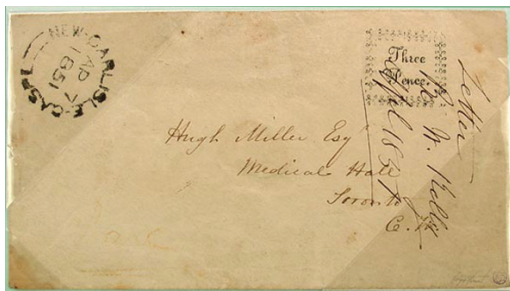 NEW-CARLISLE
AP 7
1851
GASPE
Three
Pence.
Letter
W. Kelly
April 1851
Hugh Miller Esq
Medical Hall
Toronto
C. W.